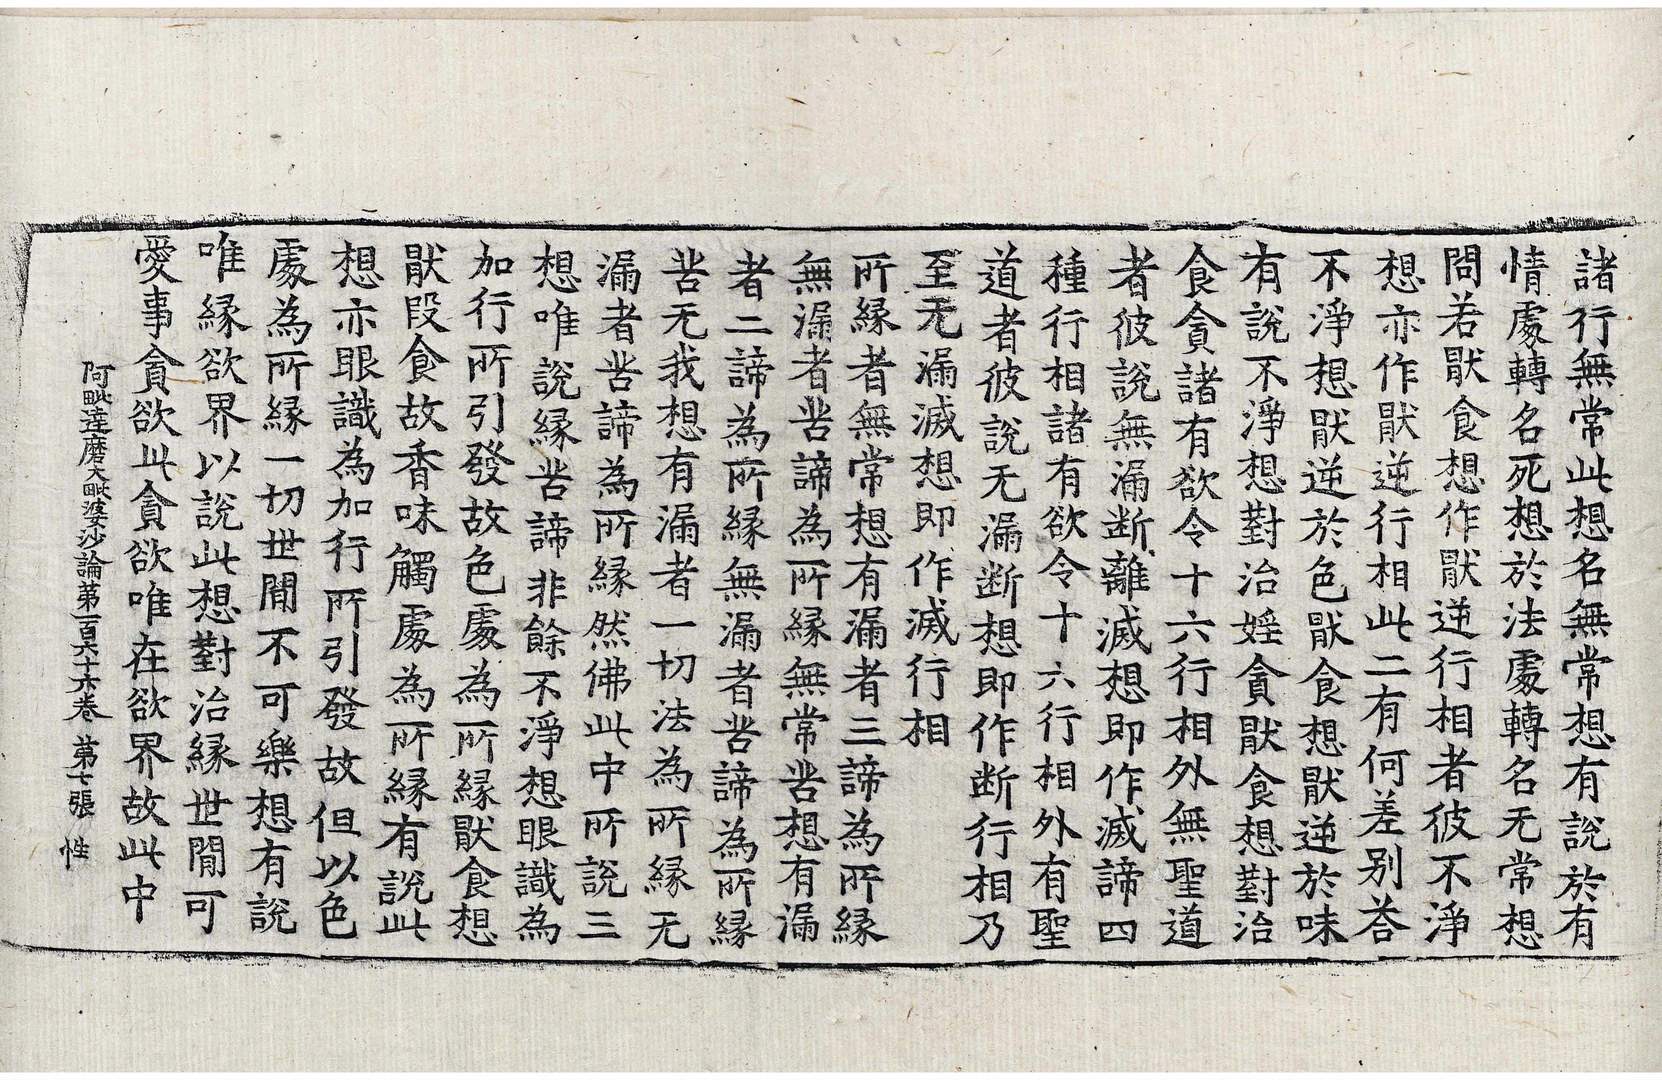 諸行無常此想名無常想有說於有
情處轉名死想於法處轉名无常想
問若猒食想作猒逆行相者彼不淨
想亦作猒逆行相此二有何差别荅
不淨想猒逆於色猒食想猒逆於味
有說不淨想對治婬貪猒食想對治
食貪諸有欲令十六行相外無聖道
者彼說無漏断離滅想即作滅諦四
種行相諸有欲令十六行相外有聖
道者彼說无漏断想即作断行相乃
至无漏滅想即作滅行相
所縁者無常想有漏者三諦為所縁
無漏者苦諦為所縁無常苦想有漏
者二諦為所縁無漏者苦諦為所縁
苦无我想有漏者一切法為所縁无
漏者苦諦為所縁然佛此中所說三
想唯說縁苦諦非餘不淨想眼識為
加行所引發故色處為所縁猒食想
猒段食故香味觸處為所縁有說此
想亦眼識為加行所引發故但以色
處為所縁一切世閒不可樂想有說
唯縁欲界以說此想對治縁世閒可
愛事貪欲此貪欲唯在欲界故此中
阿毗達磨大毗婆沙論第一百六十六卷 第七張 性